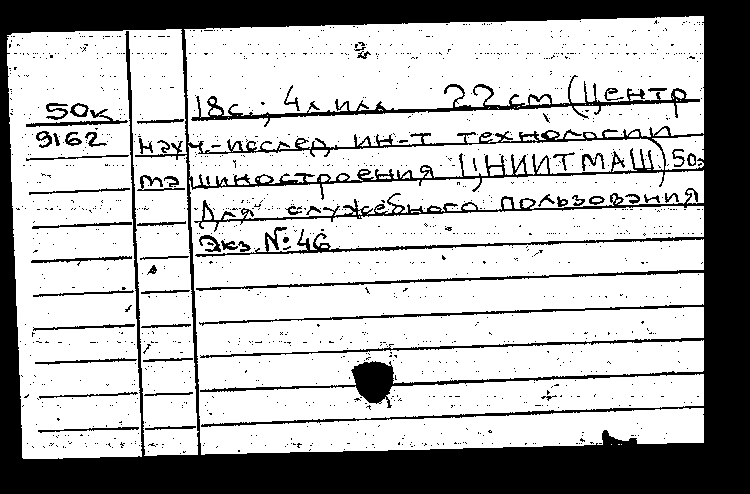 2
50к 18с.; 4л.илл. 22 см (Центр
9162 науч.-исслед. ин-т технологии
машиностроения ЦНИИТМАШ) 50э
Для служебного пользования
Экз. № 46